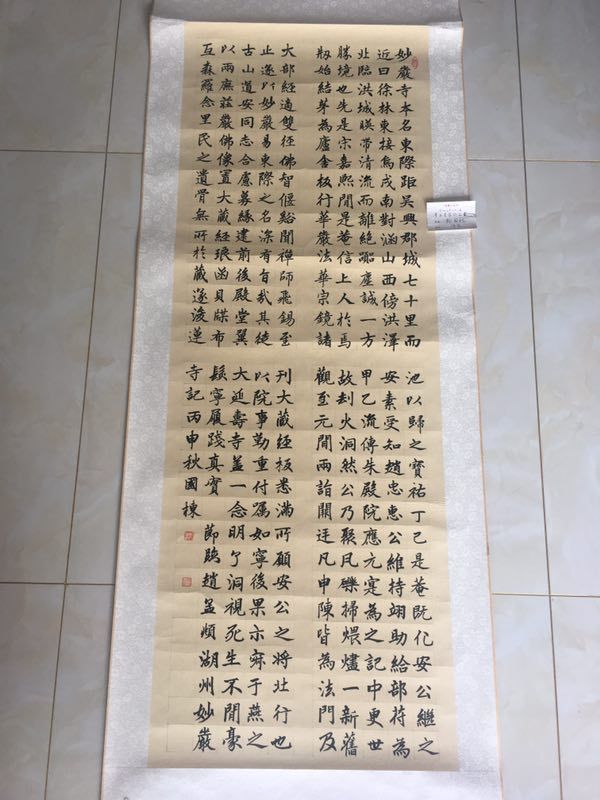 妙嚴寺本名東際距吳興郡城七十里而
近曰徐林東接烏戍南對涵山西傍洪澤
北臨洪城暎帶清流而離絕囂塵誠一方
勝境也先是宋嘉熙間是菴信上人於焉
剏始結茅為廬舍板行華嚴法華宗鏡諸
大部經適雙徑佛智偃谿聞禪師飛錫至
止遂以妙嚴易東際之名深有旨哉其徒
古山道安同志合慮募緣建前後殿堂翼
以兩廡莊嚴佛像置大藏經琅函貝牒布
互森羅念里民之遺骨無所於藏遂浚蓮
池以歸之寶祐丁巳是菴既化安公繼之
安素受知趙忠惠公維持翊助給部符為
甲乙流傳朱殿院應元寔為之記中更世
故刦火洞然公乃聚凡礫掃煨燼一新舊
觀至元間兩詣闕廷凡申陳皆為法門及
刊大藏經板悉滿所願安公之將北行也
以院事勤重付囑如寧後果示寂于燕之
大延壽寺蓋一念明了洞視死生不間豪
髮寧履踐真實 節臨趙孟頫湖州妙嚴
寺記丙申秋國棟